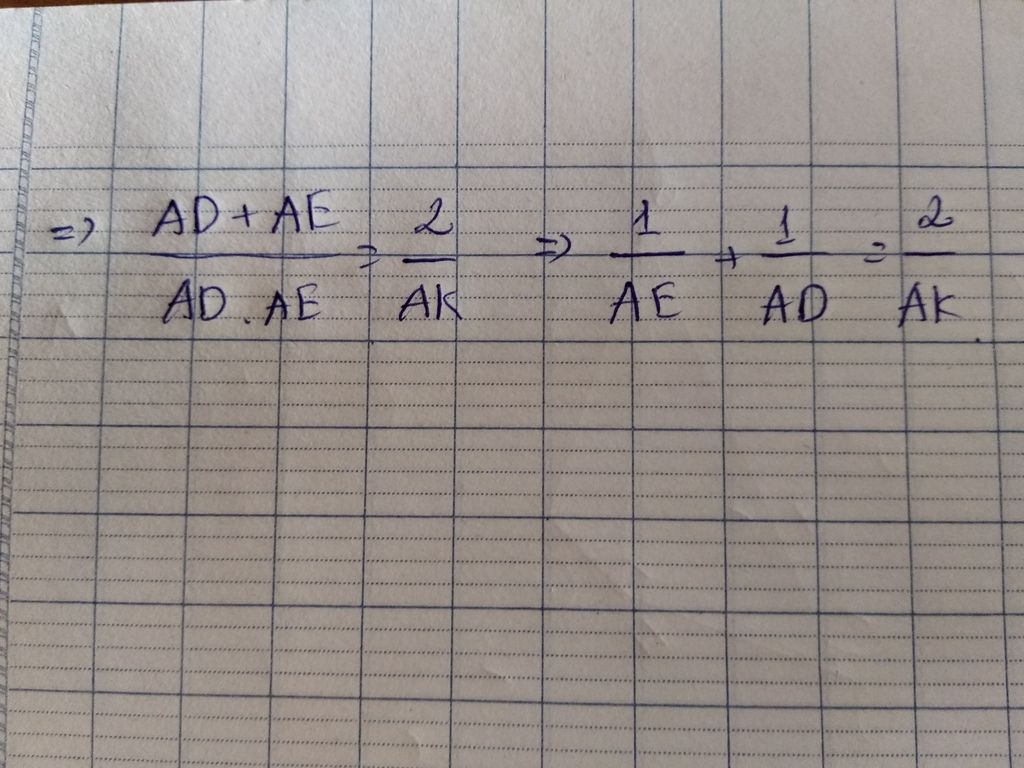 => (AD + AE)/(AD . AE) = 2/AK => 1/AE + 1/AD = 2/AK